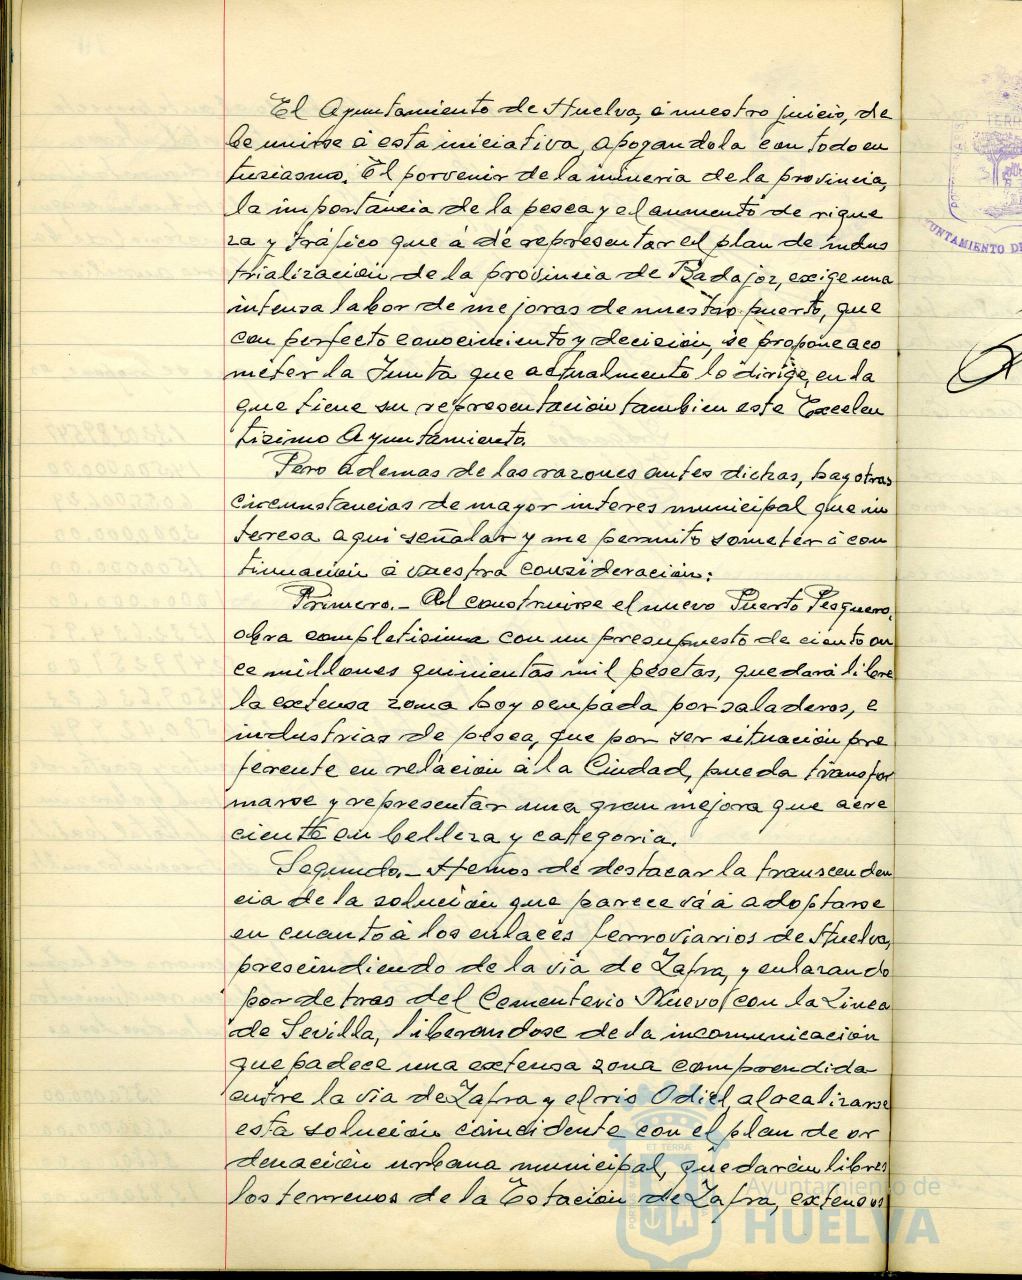 El Ayuntamiento de Huelva, a nuestro juicio, de
be unirse á esta iniciativa, apoyandola con todo en
tusiasmo. El porvenir de la mineria de la provincia,
la importancia de la pesca y el aumento de rique
za y tráfico que á de representar el plan de indus
trialización de la provincia de Badajoz, exige una
intensa labor de mejoras de nuestro puerto, que
con perfecto conocimiento y decisión, se propone aco
meter la Junta que actualmente lo dirige, en la
que tiene su representación tambien este Excelen
tisimo Ayuntamiento.
Pero ademas de las razones antes dichas, hay otras
circunstancias de mayor interes municipal que in
teresa aqui señalar y me permito someter á con
tinuación á vuestra consideración:
Primero.- Al construirse el nuevo Puerto Pesquero,
obra completisima con un presupuesto de ciento on
ce millones quinientas mil pesetas, quedará libre
la extensa zona hoy ocupada por saladeros, e
industrias de pesca, que por ser situación pre
ferente en relación á la Ciudad, pueda transfor
marse y representar una gran mejora que acre
ciente en belleza y categoria.
Segundo.- Hemos de destacar la transcenden
cia de la solución que parece vá á adoptarse
en cuanto á los enlaces ferroviarios de Huelva,
prescindiendo de la via de Zafra, y enlazando
por detras del Cementerio Nuevo con la Linea
de Sevilla, liberandose de la incomunicación
que padece una extensa zona comprendida
entre la via de Zafra y el rio Odiel, al realizarse
esta solución coincidente con el plan de or
denación urbana municipal, quedarán libres
los terrenos de la Estación de Zafra, extensos
TERR
UNTAMIENTO DE
ET TERRA
PORTUS MARIS
Ayuntamiento de
HUELVA